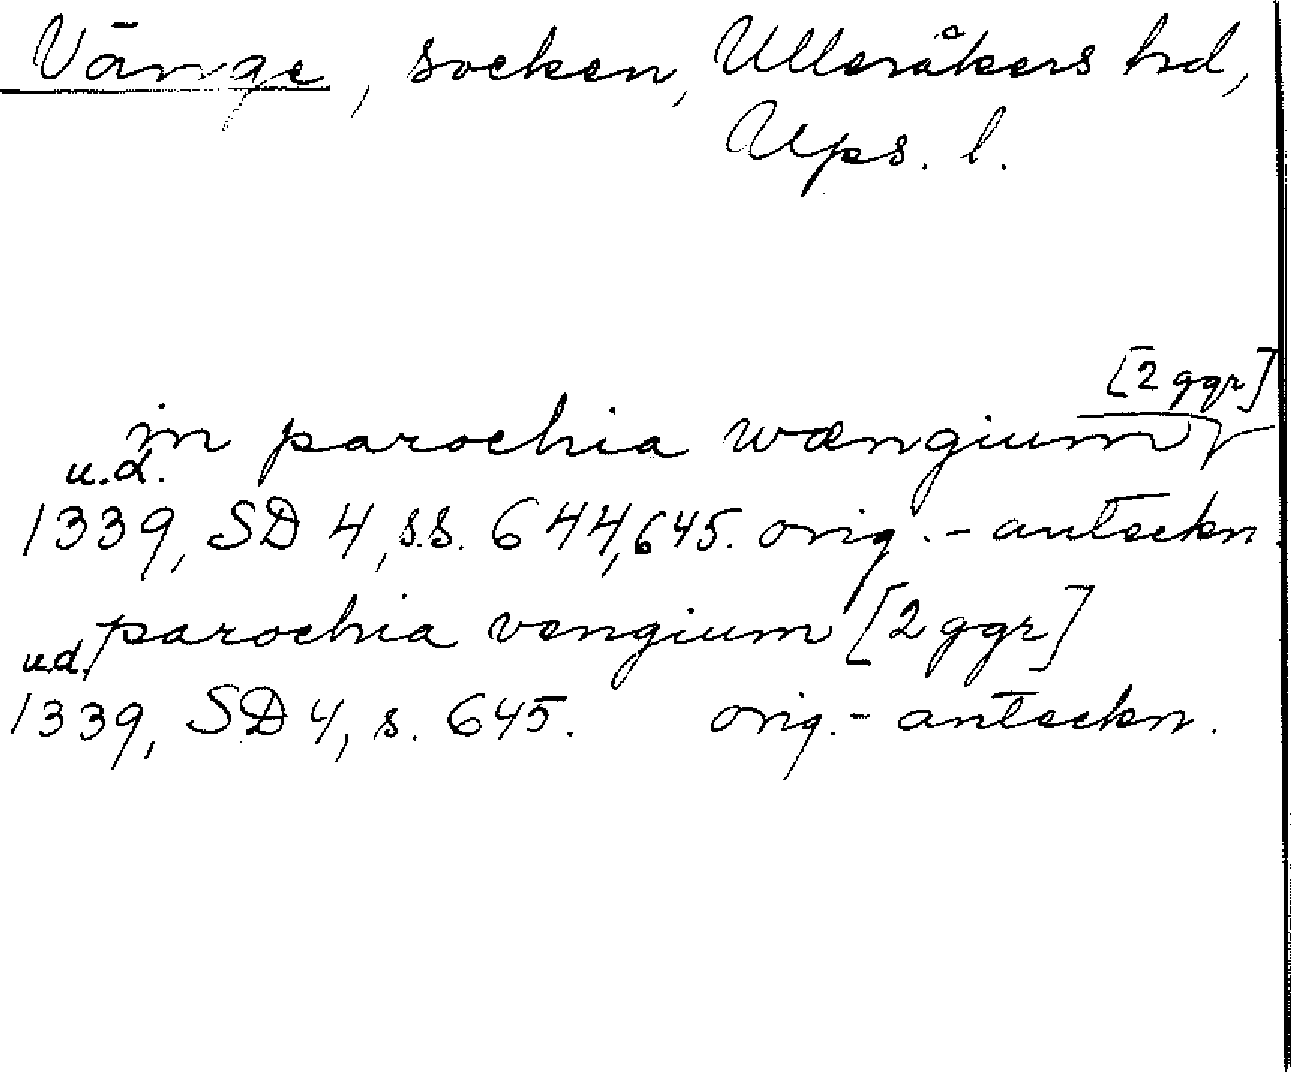 Vänge, socken, Ulleråkers hd,
Ups. l.
[2 ggr]
in parochia wængium
u.d.
1339, SD 4, s.s. 644, 645. orig.-anteckn.
parochia vengium [2 ggr]
u.d.
1339, SD 4, s. 645. orig.-anteckn.